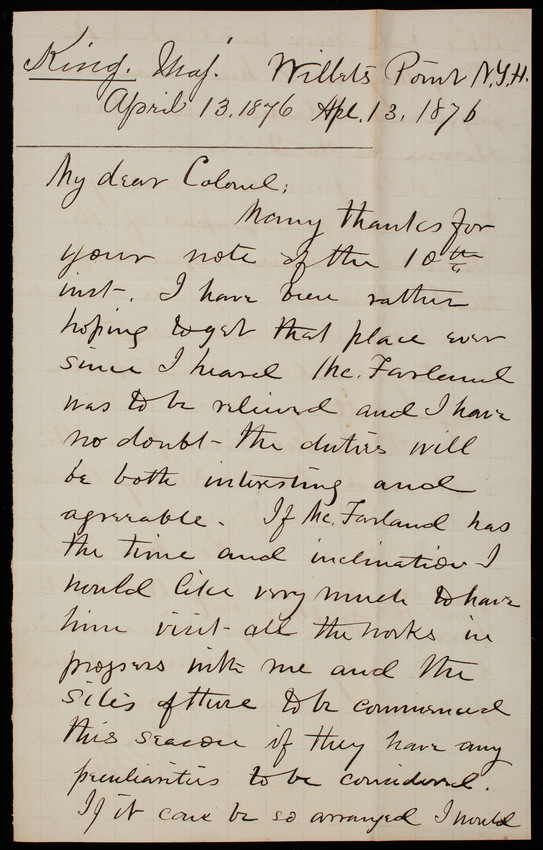 King. Maj. Willets Point N.Y.H.
April 13, 1876 Apl. 13, 1876
My dear Colonel;
Many thanks for
your note of the 10th
inst. I have been rather
hoping to get that place ever
since I heard Mc. Farland
was to be relieved and I have
no doubt the duties will
be both interesting and
agreeable. If Mc. Farland has
the time and inclination I
would like very much to have
him visit all the works in
progress with me and the
sites of those to be commenced
this season if they have any
peculiarities to be considered.
If it can be so arranged I would